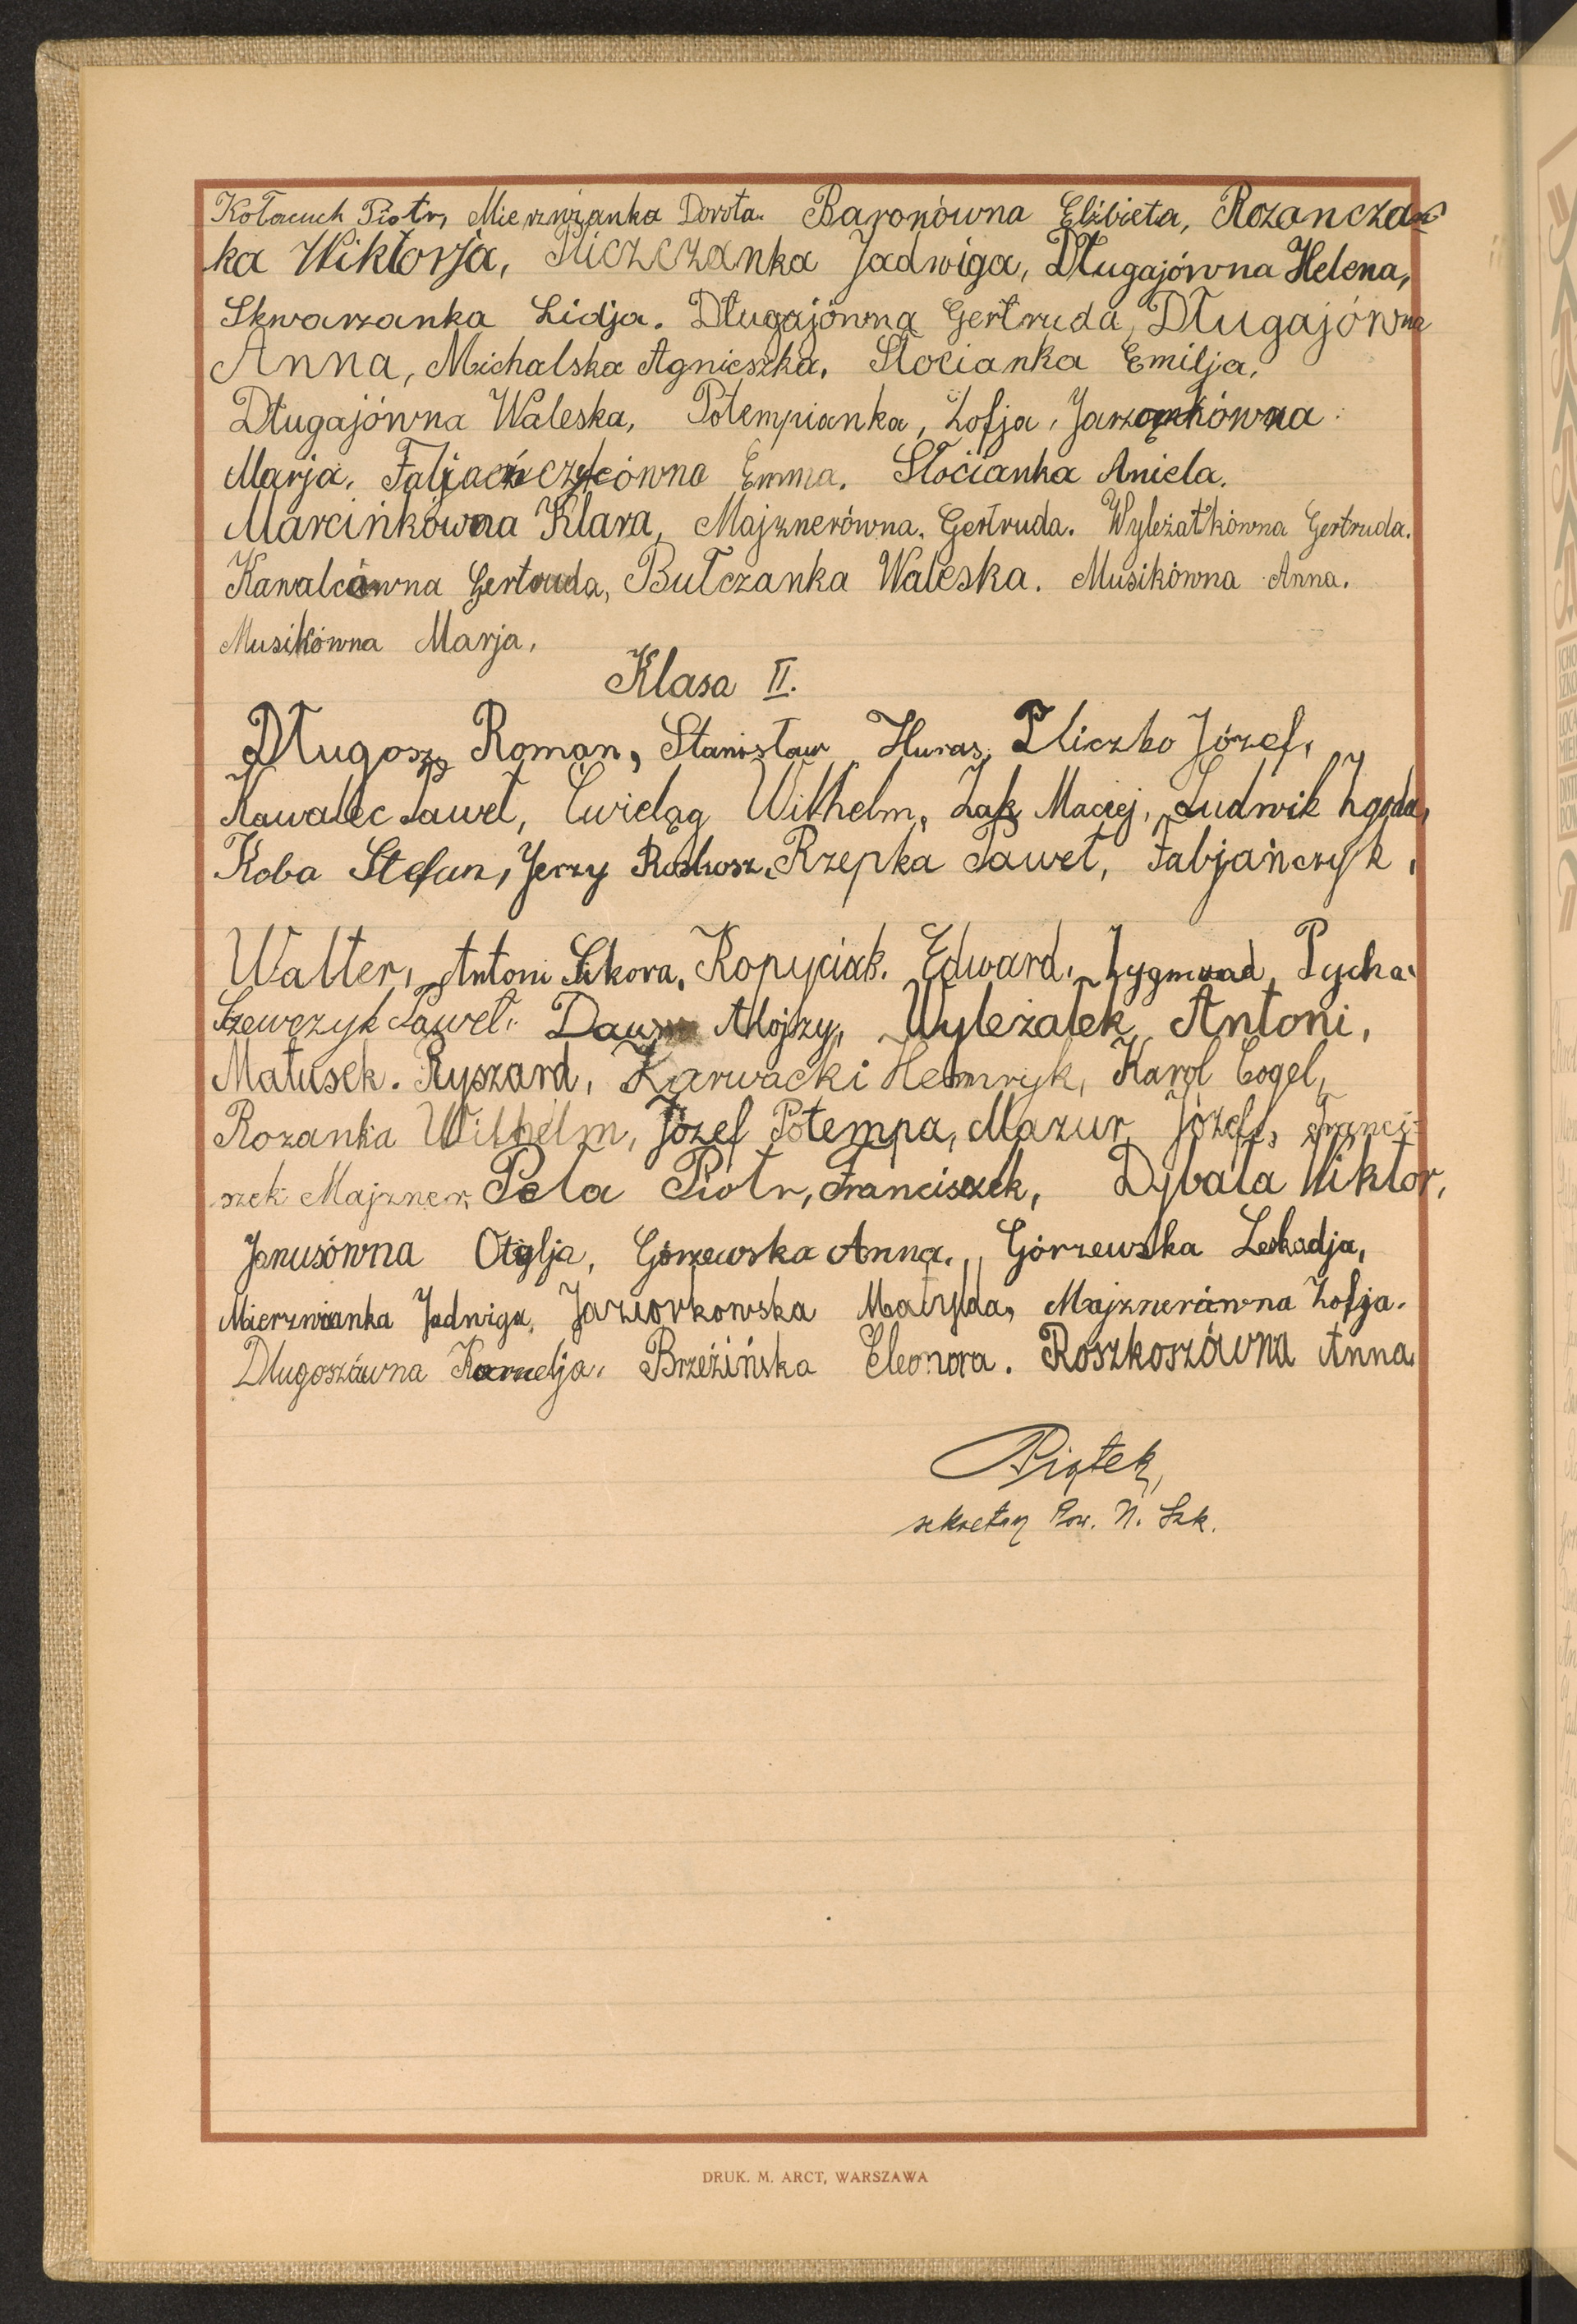 Kołacuch Piotr, Mierzwianka Dorota. Baronówna Elżbieta, Rozancza-
ka Wiktorja, Pliczczanka Jadwiga, Długajówna Helena,
Skwarzanka Lidja. Długajówna Gertruda, Długajówna
Anna, Michalska Agnieszka, Słocianka Emilja,
Długajówna Waleska, Potempianka, Zofja, Jarząmkówna
Marja, Emma. Słocianka Aniela.
Marcinkówna Klara, Majznerówna, Gertruda. Wyleżałkówna Gertruda.
Kawalcówna Gertruda, Bułczanka Waleska. Musikówna Anna.
Musikówna Marja,
Klasa II.
Długosz Roman, Stanisław Huras, Pliczko Józef,
Kawalec Paweł, Ćwieląg Wilhelm, Żak Maciej, Ludwik Zgoda,
Koba Stefan, Jerzy Roskosz, Rzepka Paweł, Fabjańczyk,
Walter, Antoni Sikora, Kopyciok. Edward, Zygmund, Pycha
Szewczyk Paweł. Alojzy, Wyleżałek Antoni,
Matusek. Ryszard, Karwacki Henryk, Karol Cogel,
Rozanka Wilhelm, Józef Potempa, Mazur Józef, Franci-
szek Majzner, Pela Piotr, Franciszek, Dybała Wiktor,
Janusówna Otylja, Górzewska Anna, Górzewska Leokadja,
Mierzwianka Jadwiga, Jaziorkowska Matylda, Majznerówna Zofja.
Długoszówna Kornelja, Brzezińska Eleonora. Roszkoszówna Anna
Piątek,
sekretarz Pow. N. Szk.
DRUK. M. ARCT, WARSZAWA